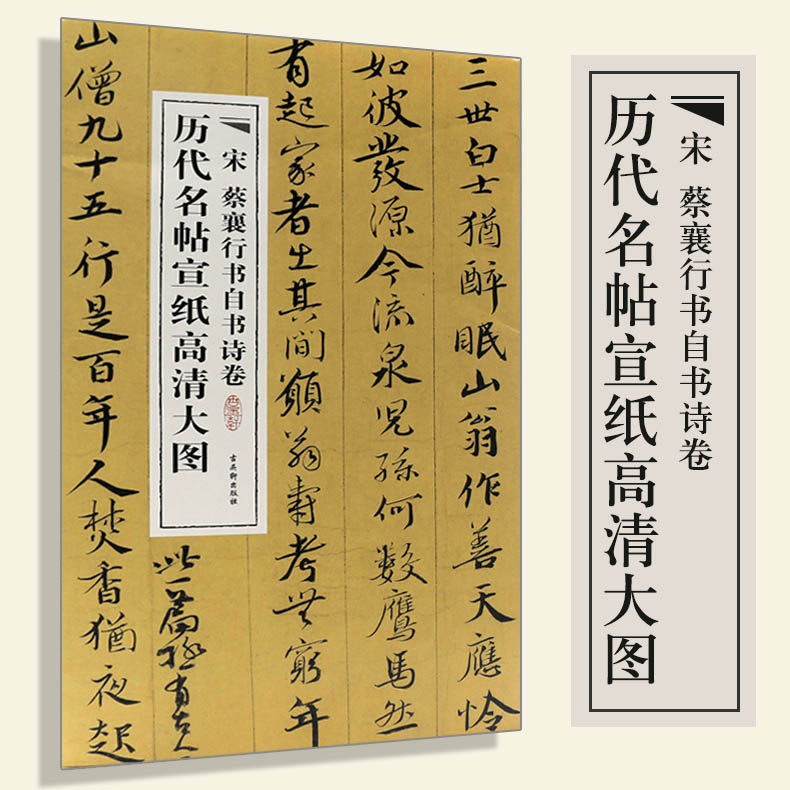 宋 蔡襄行书自书诗卷
历代名帖宣纸高清大图
三世白士猶醉眠山翁作善天應怜
如彼發源今流泉児孫何數鷹馬然
有起家者生其間願翁壽考無窮年
宋 蔡襄行书自书诗卷
历代名帖宣纸高清大图
古吴轩出版社
此一篇極有古人
山僧九十五行是百年人焚香猶夜起